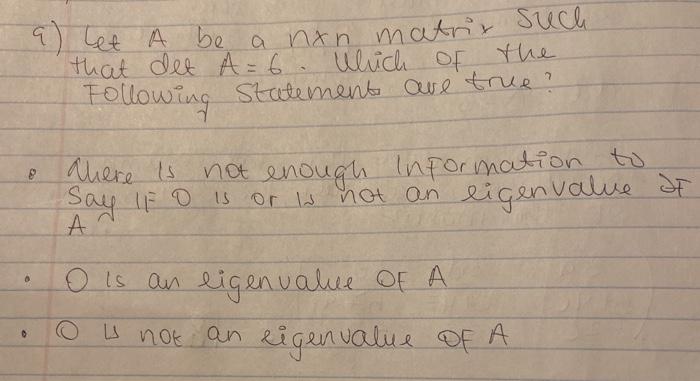 9) Let A be a nxn matrix such
that det A = 6. Which of the
Following Statements are true?
• There is not enough Information to
Say IF 0 is or is not an eigenvalue of
A
• 0 is an eigenvalue OF A
• 0 is not an eigenvalue OF A